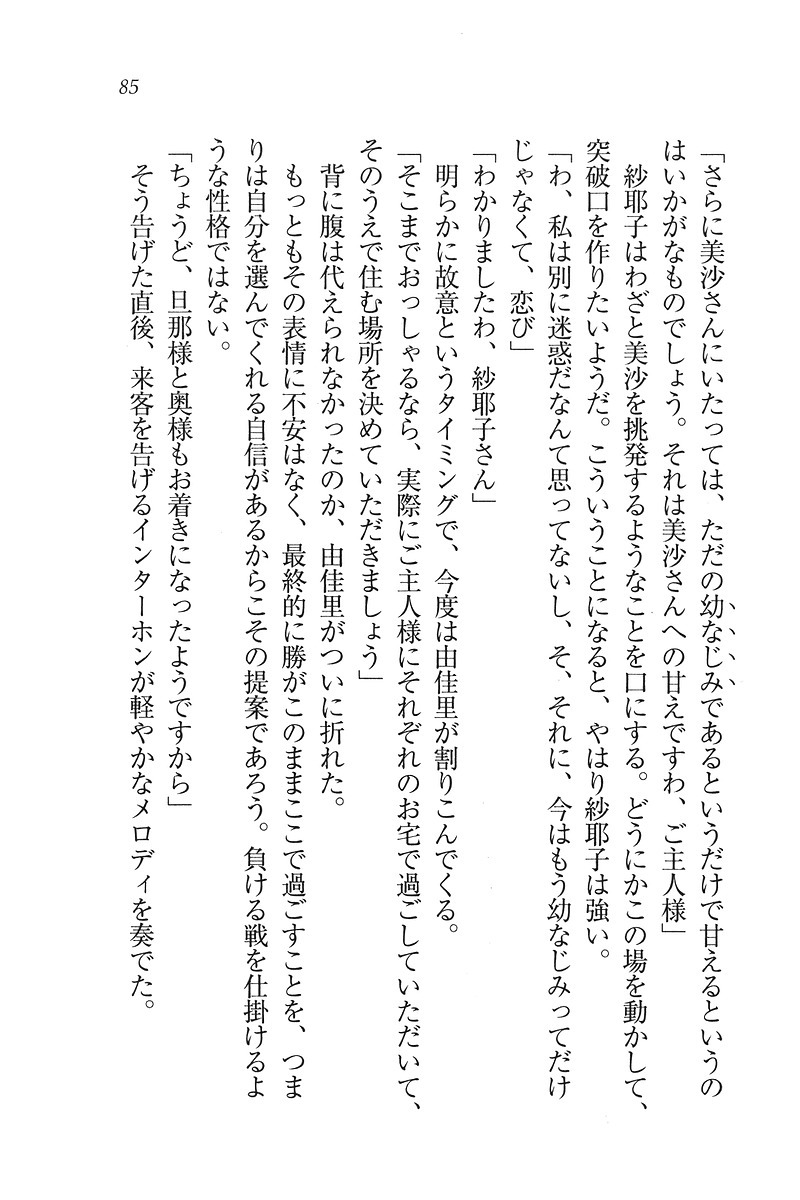 85
「さらに美沙さんにいたっては、ただの幼なじみであるというだけで甘えるというの
はいかがなものでしょう。それは美沙さんへの甘えですわ、ご主人様」
　紗耶子はわざと美沙を挑発するようなことを口にする。どうにかこの場を動かして、
突破口を作りたいようだ。こういうことになると、やはり紗耶子は強い。
「わ、私は別に迷惑だなんて思ってないし、そ、それに、今はもう幼なじみってだけ
じゃなくて、恋び」
「わかりましたわ、紗耶子さん」
　明らかに故意というタイミングで、今度は由佳里が割りこんでくる。
「そこまでおっしゃるなら、実際にご主人様にそれぞれのお宅で過ごしていただいて、
そのうえで住む場所を決めていただきましょう」
　背に腹は代えられなかったのか、由佳里がついに折れた。
　もっともその表情に不安はなく、最終的に勝がこのままここで過ごすことを、つま
りは自分を選んでくれる自信があるからこその提案であろう。負ける戦を仕掛けるよ
うな性格ではない。
「ちょうど、旦那様と奥様もお着きになったようですから」
　そう告げた直後、来客を告げるインターホンが軽やかなメロディを奏でた。